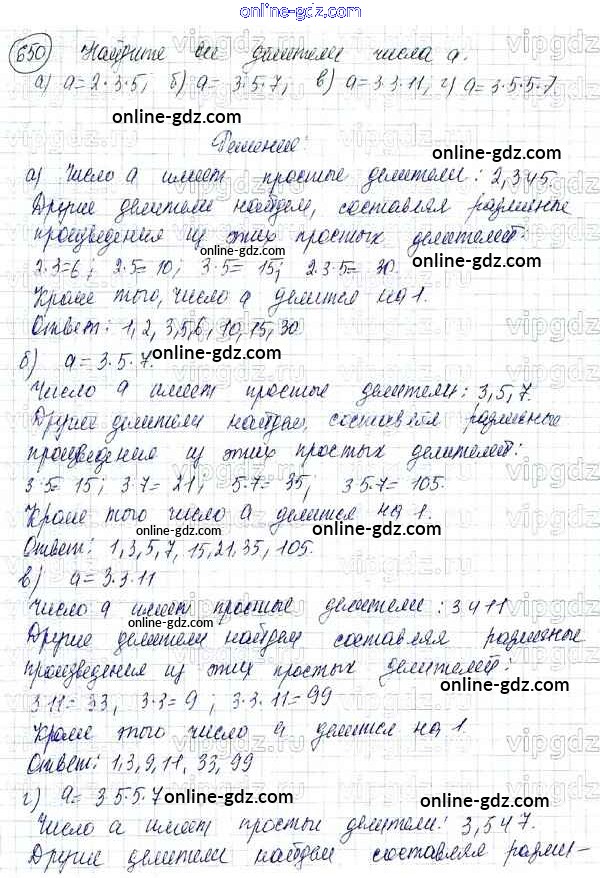 online-gdz.com
650 Найдите все делители числа а.
а) а=2·3·5, б) а= 3·5·7, в) а=3·3·11, г) а=3·5·5·7
online-gdz.com
Решение:
online-gdz.com
а) Число а имеет простые делители: 2,3 и 5.
Другие делители найдем, составляя различные
произведения из этих простых делителей:
online-gdz.com
2·3=6; 2·5=10; 3·5= 15; 2·3·5= 30.
online-gdz.com
Кроме того, число а делится на 1.
online-gdz.com
Ответ: 1,2,3,5,6,10,15,30
б) а=3·5·7.
online-gdz.com
Число а имеет простые делители: 3,5,7.
online-gdz.com
Другие делители найдем, составляя различные
произведения из этих простых делителей:
online-gdz.com
3·5= 15; 3·7= 21; 5·7= 35; 3·5·7= 105.
Кроме того число а делится на 1.
online-gdz.com
Ответ: 1,3,5,7,15,21,35,105.
online-gdz.com
в) а=3·3·11
online-gdz.com
Число а имеет простые делители: 3 и 11
Другие делители найдем составляя различные
произведения из этих простых делителей:
online-gdz.com
3·11= 33; 3·3= 9; 3·3·11=99
Кроме того число а делится на 1.
online-gdz.com
Ответ: 1,3,9,11,33,99
г) а= 3·5·5·7
online-gdz.com
online-gdz.com
Число а имеет простые делители: 3,5 и 7.
Другие делители найдем составляя разли-
online-gdz.com
vipgdz.ru